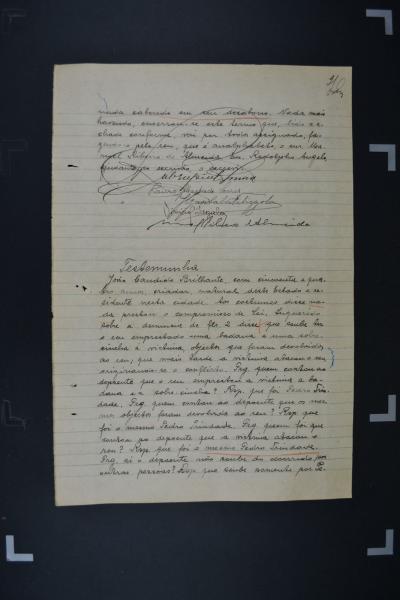 nada sabendo em seu desabono. Nada mais
havendo, encerrou-se este termo que, lido e a-
chado conforme, vai por todos assignado, fa-
zendo-o pelo réu, que é analphabeto, o snr. Ma-
noel Ribeiro de Almeida. Eu, Rodolpho
escrivão, o escrevi.
Almeida
Testemunha
João Candido Brilhante, com cincoenta e qua-
tro annos, criador, natural deste Estado e re-
sidente nesta cidade. Aos costumes disse na-
da prestou o compromisso da Lei. Inquirido
sobre a denuncia de fls. 2 disse que sabe ter
o reu emprestado uma badana e uma sobre-
cincha á victima, objectos que foram devolvidos
ao reu; que mais tarde a victima atacou o reu
originando-se o conflicto. Prg. quem contou ao
depoente que o reu emprestára a victima a ba-
dana e a sobre-cincha? Resp. que foi Pedro Trin-
dade. Prg. quem contou ao depoente que os mes-
mos objectos foram devolvidos ao reu? Resp. que
foi o mesmo Pedro Trindade. Prg. quem foi que
contou ao depoente que a victima atacou o
reu? Resp. que foi o mesmo Pedro Trindade.
Prg. si o depoente não soube do occorrido por
outras pessoas? Resp. que soube somente por Pe-